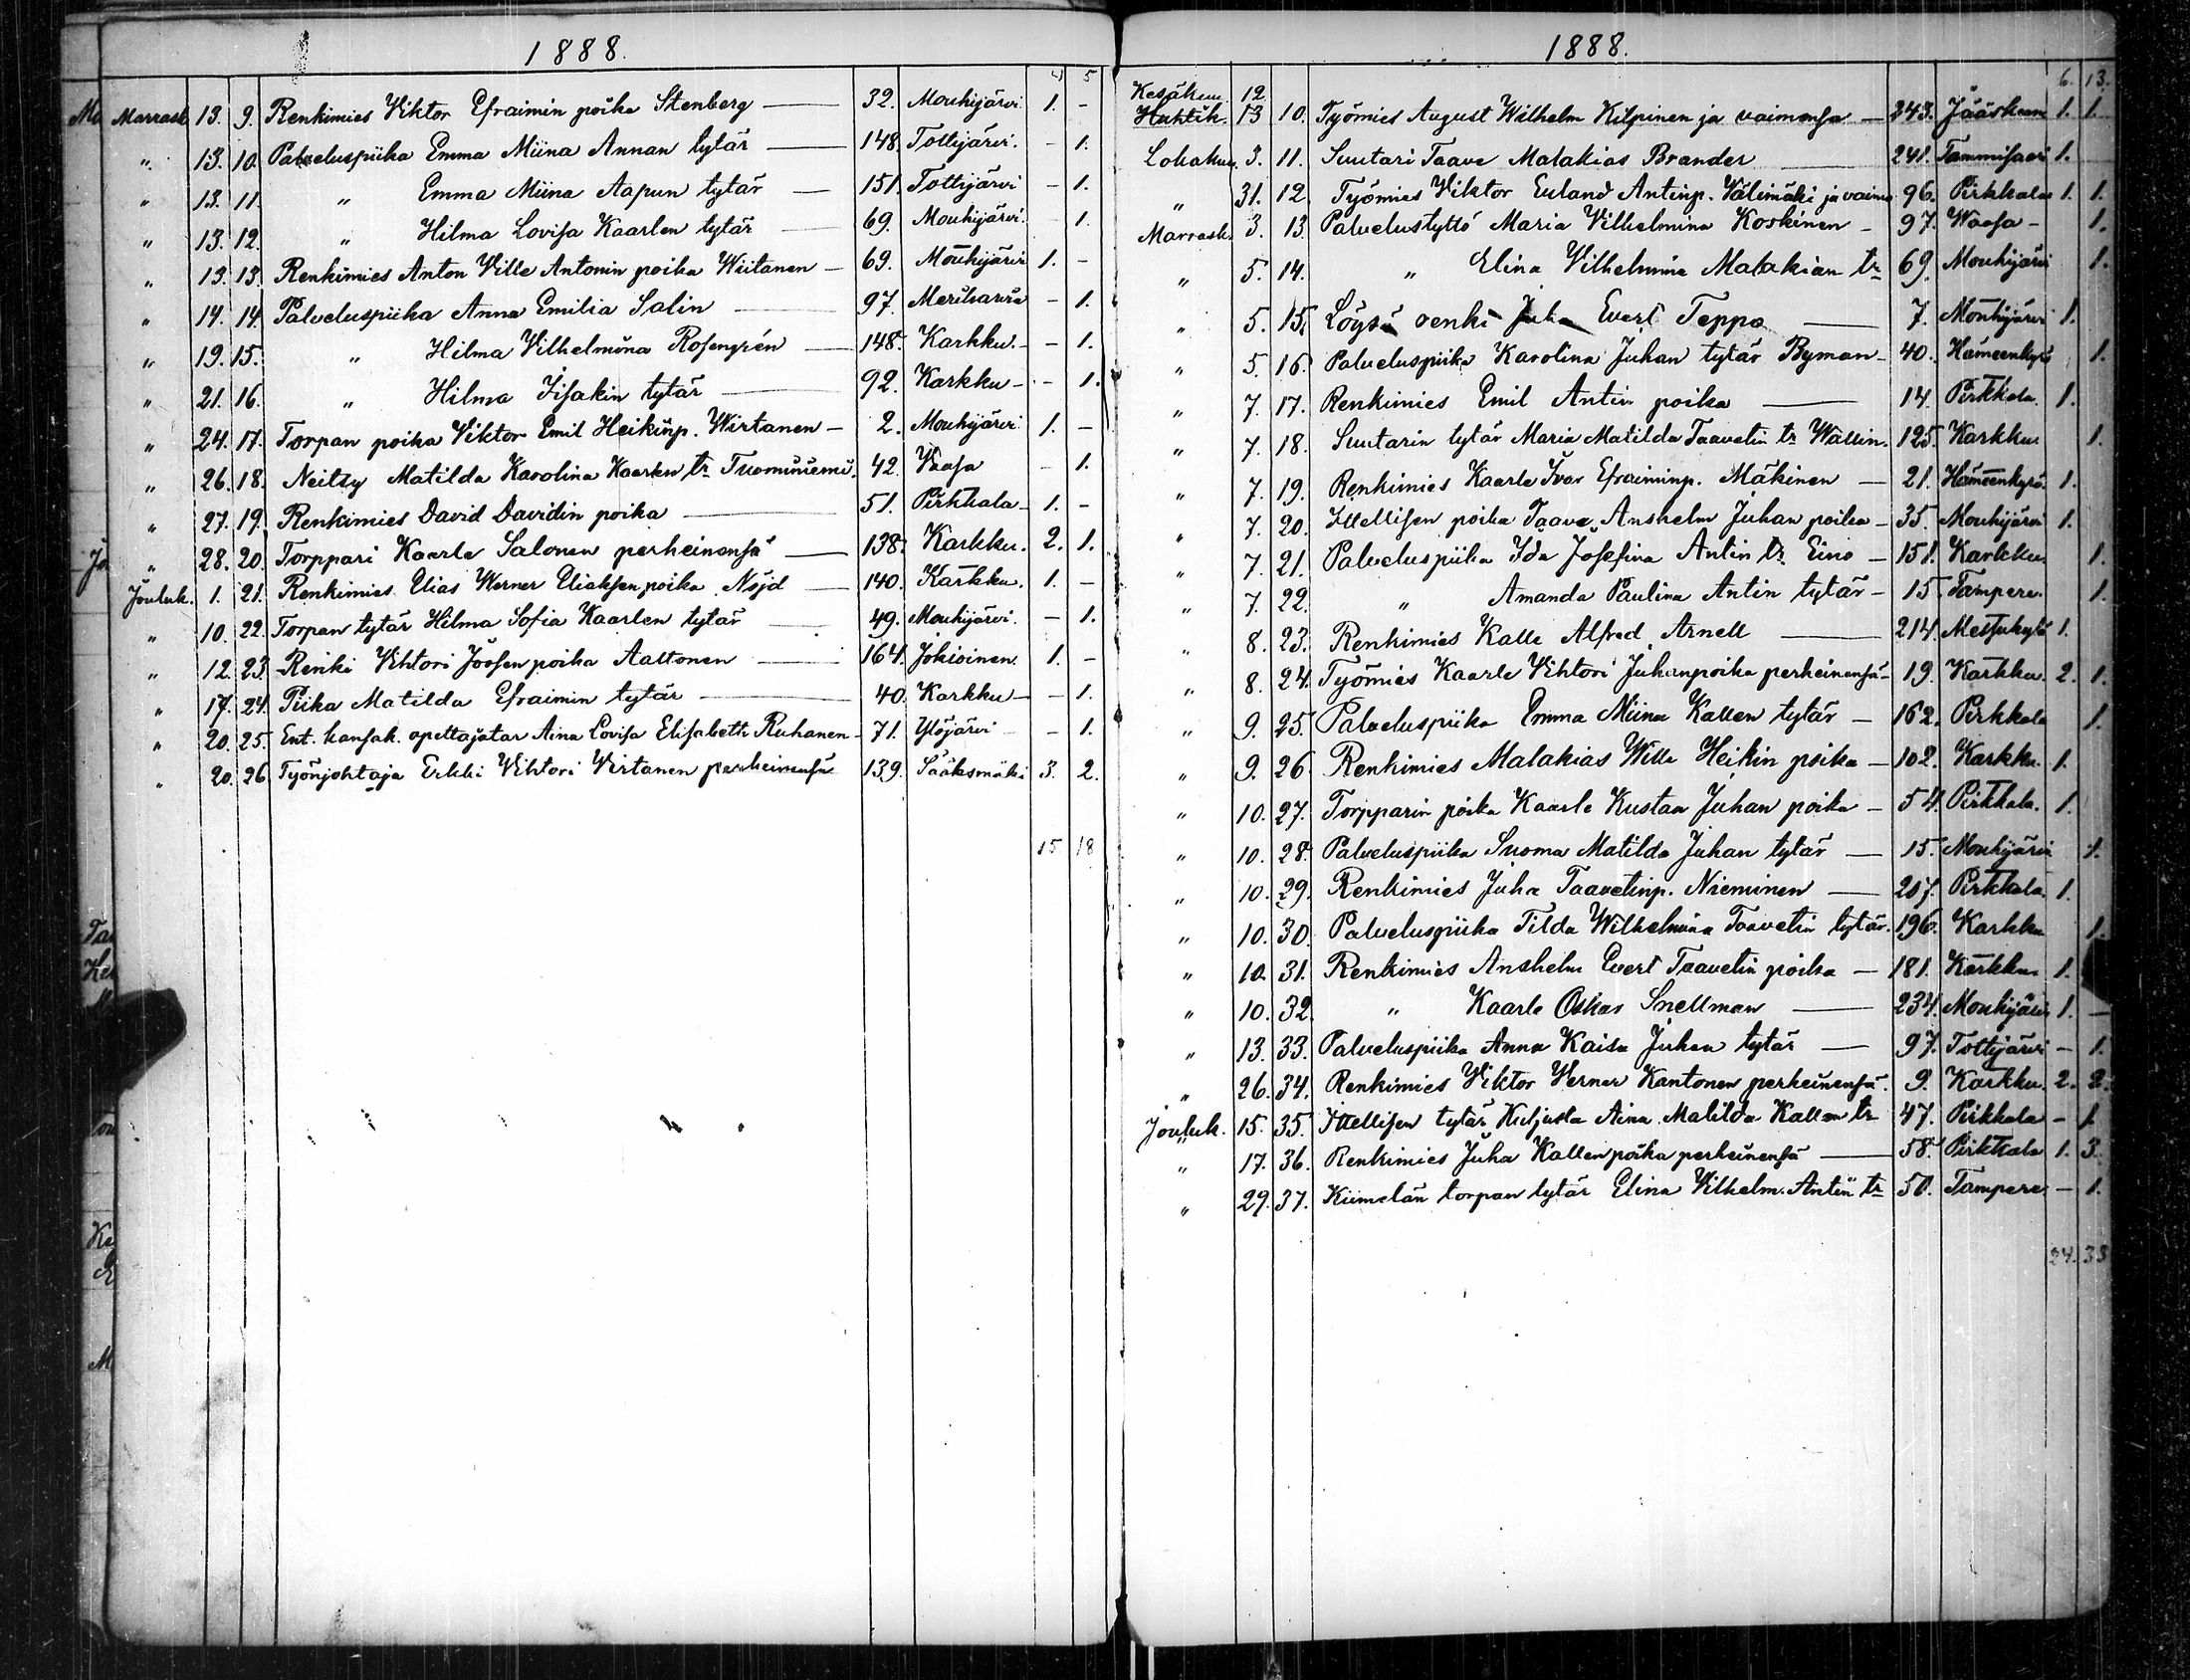 1888.
4 5
Marrask. 13. 9. Renkimies Viktor Efraimin poika Stenberg — 32. Mouhijärvi. 1. -
„ 13. 10. Palveluspiika Emma Miina Annan tytär — 148. Tottijärvi. - 1.
„ 13. 11. „ Emma Miina Aapun tytär — 151. Tottijärvi - 1.
„ 13. 12. „ Hilma Lovisa Kaarlen tytär — 69. Mouhijärvi. 1.
„ 13. 13. Renkimies Anton Ville Antonin poika Wiitanen — 69. Mouhijärvi 1. -
„ 14. 14. Palveluspiika Anna Emilia Salin — 97. Merikarvia - 1.
„ 19. 15. „ Hilma Vilhelmiina Rosengrén — 148. Karkku. - 1.
„ 21. 16. „ Hilma Iisakin tytär — 92. Karkku - - 1.
„ 24. 17. Torpan poika Viktor Emil Heikinp. Wirtanen — 2. Mouhijärvi 1. -
„ 26. 18. Neitsy Matilda Karolina Kaarlen tr Tuominiemi. 42. Vaasa - 1.
„ 27. 19. Renkimies David Davidin poika — 51. Pirkkala - 1. -
„ 28. 20. Torppari Kaarle Salonen perheinensä — 138. Karkku. 2. 1.
Jouluk. 1. 21. Renkimies Elias Werner Eliaksen poika Nöjd — 140. Karkku. 1. -
„ 10. 22. Torpan tytär Hilma Sofia Kaarlen tytär — 49. Mouhijärvi. - 1.
„ 12. 23. Renki Vihtori Joosen poika Aaltonen — 164. Jokioinen. 1. -
„ 17. 24. Piika Matilda Efraimin tytär — 40. Karkku - - 1.
„ 20. 25. Ent. kansak. opettajatar Aina Lovisa Elisabeth Ruhanen - 71. Ylöjärvi - - 1.
„ 20. 26. Työnjohtaja Erkki Vihtori Virtanen perheinensä 139. Sääksmäki 3. 2.
15 18
1888.
6. 13.
Kesäkuu 12.
Huhtik. 13 10. Työmies August Wilhelm Kilpinen ja vaimonsa — 343. Jääskeen 1. 1.
Lokakuu. 3. 11. Suutari Taave Malakias Brander — 241. Tammisaari 1.
„ 31. 12. Työmies Viktor Erland Antinp. Välimäki ja vaimo 96. Pirkkala 1. 1.
Marrask. 3. 13. Palvelustyttö Maria Vilhelmina Koskinen - 97. Waasa - 1.
„ 5. 14. „ Elina Vilhelmina Malakian tr 69. Mouhijärvi 1.
„ 5. 15. Löysä renki Juha Evert Teppo — 7. Mouhijärvi 1.
„ 5. 16. Palveluspiika Karolina Juhan tytär Byman - 40. Hämeenkyrö 1.
„ 7. 17. Renkimies Emil Antin poika — 14. Pirkkala. 1.
„ 7. 18. Suutarin tytär Maria Matilda Taavetin tr Wallin. 125. Karkku 1.
„ 7. 19. Renkimies Kaarle Ivar Efraiminp. Mäkinen — 21. Hämeenkyrö. 1.
„ 7. 20. Itsellisen poika Taave Anshelm Juhan poika - 35. Mouhijärvi 1.
„ 7. 21. Palveluspiika Ida Josefina Antin tr Eino - 151. Karkku 1.
„ 7. 22. „ Amanda Paulina Antin tytär - 15. Tampere. 1.
„ 8. 23. Renkimies Kalle Alfred Arnell — 214. Messukylä 1.
„ 8. 24. Työmies Kaarle Vihtori Juhanpoika perheinensä - 19. Karkku. 2. 1.
„ 9. 25. Palveluspiika Emma Miina Kallen tytär — 162. Pirkkala 1.
„ 9. 26. Renkimies Malakias Wille Heikin poika — 102. Karkku. 1.
„ 10. 27. Torpparin poika Kaarle Kustaa Juhan poika - 54. Pirkkala. 1.
„ 10. 28. Palveluspiika Suoma Matilda Juhan tytär — 15. Mouhijärvi 1.
„ 10. 29. Renkimies Juha Taavetinp. Nieminen — 207. Pirkkala. 1.
„ 10. 30. Palveluspiika Tilda Wilhelmina Taavetin tytär. 196. Karkku 1.
„ 10. 31. Renkimies Anshelm Evert Taavetin poika — 181. Karkku 1.
„ 10. 32. „ Kaarle Oskar Snellman — 234. Mouhijärvi 1. —
„ 13. 33. Palveluspiika Anna Kaisa Juhan tytär — 97. Tottijärvi - 1.
„ 26. 34. Renkimies Viktor Verner Kantonen perheinensä. 9. Karkku. 2. 2.
Jouluk. 15. 35. Itsellisen tytär Aina Matilda Kallen tr 47. Pirkkala - 1
„ 17. 36. Renkimies Juha Kallen poika perheinensä — 58. Pirkkala 1. 3.
„ 29. 37. Kiimelän torpan tytär Elina Vilhelm. Antin tr 50. Tampere - 1.
24. 33